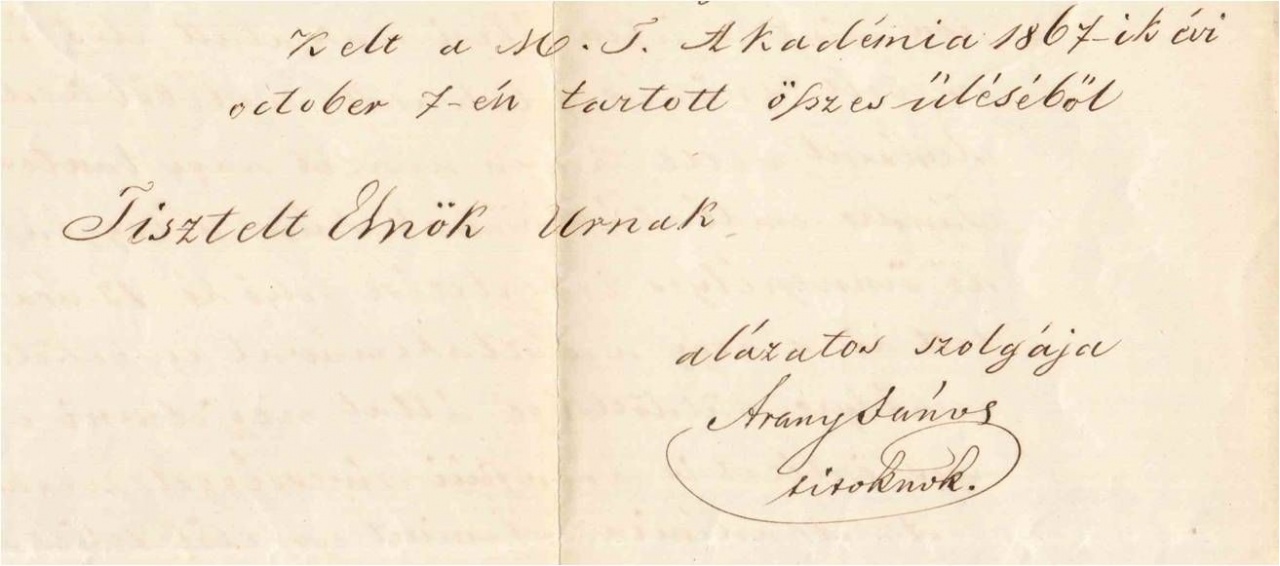 Kelt a M. T. Akadémia 1867-ik évi
october 7-én tartott öszzes üléséből
Tisztelt Elnök Urnak
alázatos szolgája
Arany János
titoknok.